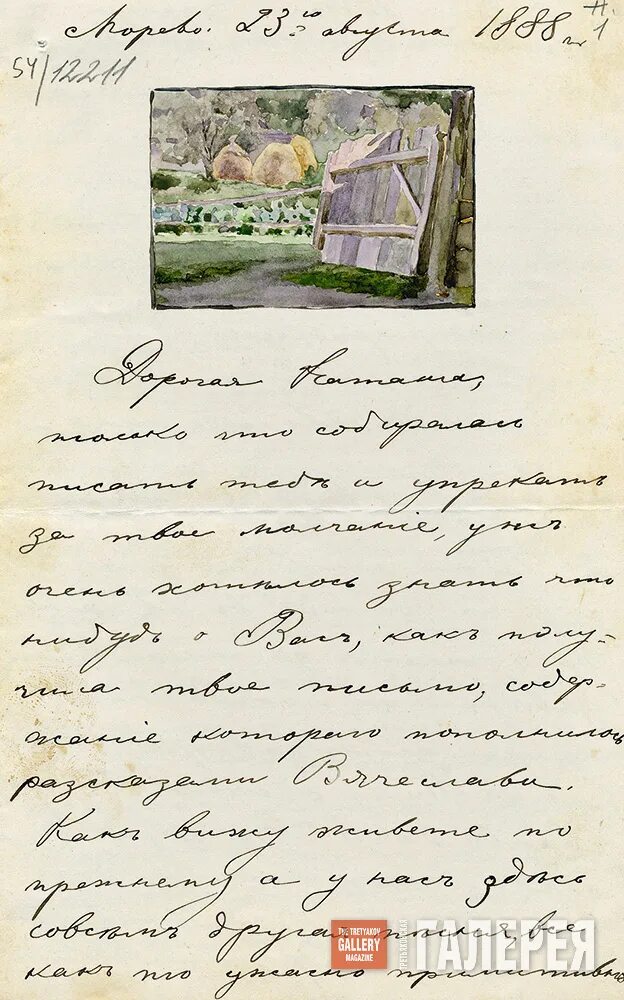 Морево. 23го августа 1888 г.
н.
1
54/12211
Дорогая Наташа,
только что собиралась
писать тебѣ и упрекать
за твое молчаніе, ужъ
очень хотѣлось знать что
нибудь о Васъ, какъ полу=
чила твое письмо, содер=
жаніе котораго пополнилось
разсказами Вячеслава.
Какъ вижу живете по
прежнему а у насъ здѣсь
совсѣмъ другая все
какъ то ужасно примитивно
THE TRETYAKOV
GALLERY
MAGAZINE
ТРЕТЬЯКОВСКАЯ
ГАЛЕРЕЯ